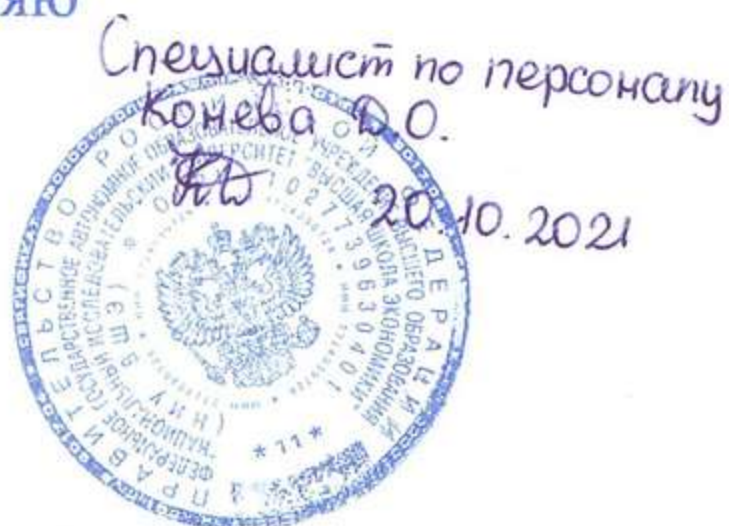 Специалист по персоналу
Конева Д.О.
20.10.2021
ПРАВИТЕЛЬСТВО РОССИЙСКОЙ ФЕДЕРАЦИИ
ФЕДЕРАЛЬНОЕ ГОСУДАРСТВЕННОЕ АВТОНОМНОЕ ОБРАЗОВАТЕЛЬНОЕ УЧРЕЖДЕНИЕ ВЫСШЕГО ОБРАЗОВАНИЯ
"НАЦИОНАЛЬНЫЙ ИССЛЕДОВАТЕЛЬСКИЙ УНИВЕРСИТЕТ "ВЫСШАЯ ШКОЛА ЭКОНОМИКИ"
(НИУ ВШЭ) * О 1027739630401
* 11 *